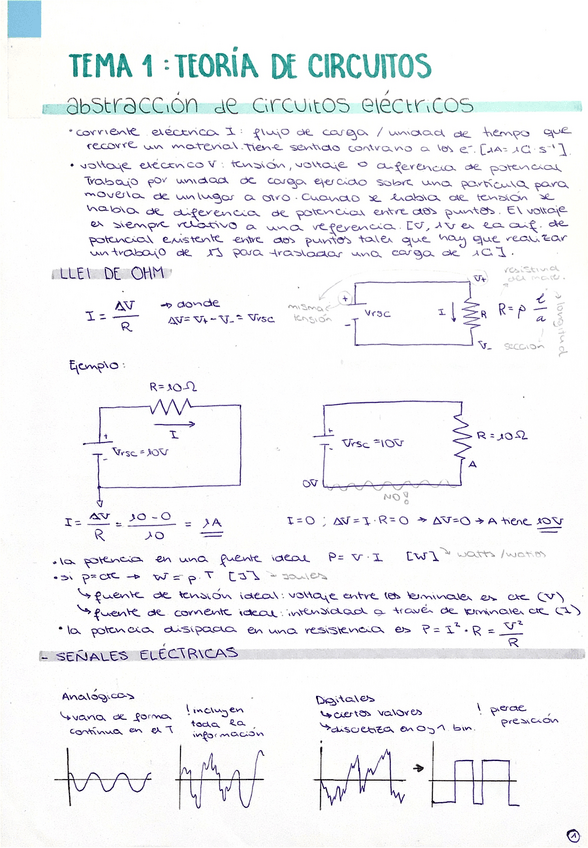 TEMA 1 : TEORÍA DE CIRCUITOS
abstracción de circuitos eléctricos
• corriente eléctrica I : flujo de carga / unidad de tiempo que
recorre un material. Tiene sentido contrario a los e⁻. [1A = 1C·s⁻¹].
• voltaje eléctrico V : tensión, voltaje o diferencia de potencial
Trabajo por unidad de carga ejercido sobre una partícula para
moverla de un lugar a otro. Cuando se habla de tensión se
habla de diferencia de potencial entre dos puntos. El voltaje
es siempre relativo a una referencia. [V, 1V es la dif. de
potencial existente entre dos puntos tales que hay que realizar
un trabajo de 1J para trasladar una carga de 1C].
LLEI DE OHM
I = ΔV / R → donde
ΔV = V₊ - V₋ = Vrsc
misma tensión
+
-
Vrsc
V+
I ↓ R
V-
R = ρ l / a
longitud
sección
Ejemplo :
R = 10 Ω
I
+
-
Vrsc = 10V
+
-
Vrsc = 10V
R = 10 Ω
A
0V
NO!
I = ΔV / R = 10 - 0 / 10 = 1A
I = 0 ; ΔV = I · R = 0 → ΔV = 0 → A tiene 10V
• la potencia en una fuente ideal P = V · I [W] → watts / watios
• si p = cte → W = p . T [J] - joules
↳ fuente de tensión ideal : voltaje entre los terminales es cte (V)
↳ fuente de corriente ideal : intensidad a través de terminales cte (I)
• la potencia disipada en una resistencia es P = I² · R = V² / R
- SEÑALES ELÉCTRICAS
Analógicas
↳ varia de forma
continua en el T
! incluyen
toda la
información
Digitales
↳ ciertos valores
↳ discretiza en 0 y 1 bin.
! pierde
presición
1